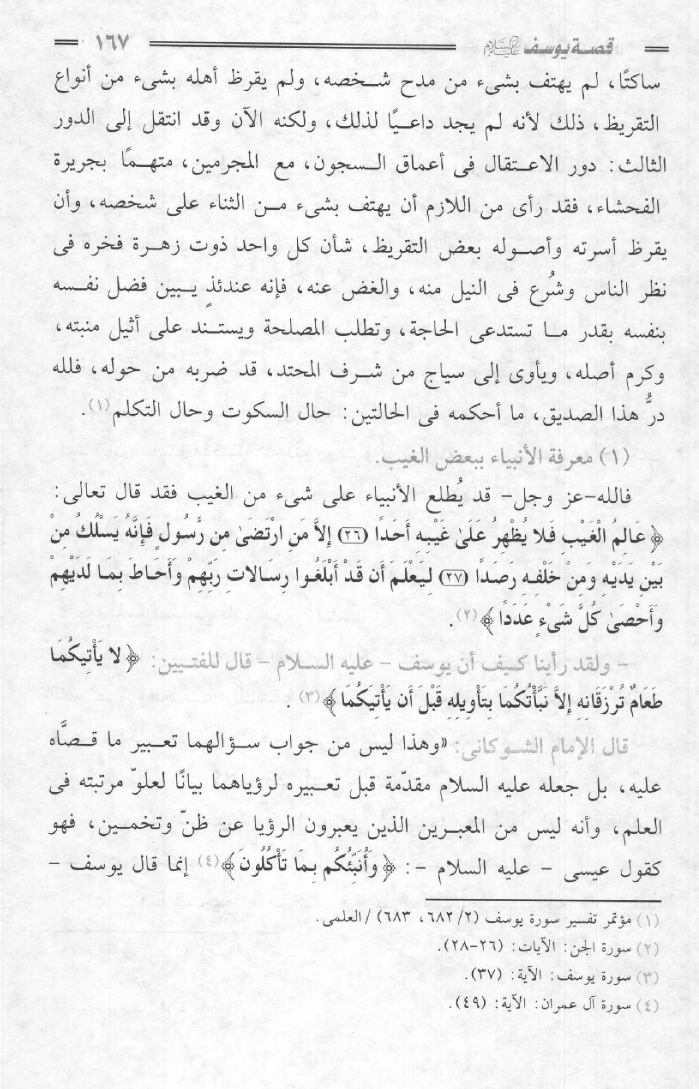 قصة يوسف عليه السلام ١٦٧
ساكتًا، لم يهتف بشىء من مدح شخصه، ولم يقرظ أهله بشىء من أنواع
التقريظ، ذلك لأنه لم يجد داعيًا لذلك، ولكنه الآن وقد انتقل إلى الدور
الثالث: دور الاعتقال فى أعماق السجون، مع المجرمين، متهمًا بجريرة
الفحشاء، فقد رأى من اللازم أن يهتف بشىء من الثناء على شخصه، وأن
يقرظ أسرته وأصوله بعض التقريظ، شأن كل واحد ذوت زهرة فخره فى
نظر الناس وشُرع فى النيل منه، والغض عنه، فإنه عندئذٍ يبين فضل نفسه
بنفسه بقدر ما تستدعى الحاجة، وتطلب المصلحة ويستند على أثيل منبته،
وكرم أصله، ويأوى إلى سياج من شرف المحتد، قد ضربه من حوله، فلله
درُّ هذا الصديق، ما أحكمه فى الحالتين: حال السكوت وحال التكلم(١).
(١) معرفة الأنبياء ببعض الغيب.
فالله-عز وجل- قد يُطلع الأنبياء على شىء من الغيب فقد قال تعالى:
﴿ عَالِمُ الْغَيْبِ فَلا يُظْهِرُ عَلَىٰ غَيْبِهِ أَحَدًا (٢٦) إِلاَّ مَنِ ارْتَضَىٰ مِن رَّسُولٍ فَإِنَّهُ يَسْلُكُ مِنْ
بَيْنِ يَدَيْهِ وَمِنْ خَلْفِهِ رَصَدًا (٢٧) لِيَعْلَمَ أَن قَدْ أَبْلَغُوا رِسالاتِ رَبِّهِمْ وَأَحَاطَ بِمَا لَدَيْهِمْ
وَأَحْصَىٰ كُلَّ شَىْءٍ عَدَدًا ﴾(٢).
- ولقد رأينا كيف أن يوسف - عليه السلام - قال للفتيين: ﴿ لا يَأْتِيكُمَا
طَعَامٌ تُرْزَقَانِهِ إِلاَّ نَبَّأْتُكُمَا بِتَأْوِيلِهِ قَبْلَ أَن يَأْتِيَكُمَا ﴾(٣) .
قال الإمام الشوكانى: «وهذا ليس من جواب سؤالهما تعبير ما قصَّاه
عليه، بل جعله عليه السلام مقدّمة قبل تعبيره لرؤياهما بيانًا لعلوّ مرتبته فى
العلم، وأنه ليس من المعبرين الذين يعبرون الرؤيا عن ظنّ وتخمين، فهو
كقول عيسى - عليه السلام -: ﴿ وَأُنَبِّئُكُم بِمَا تَأْكُلُونَ ﴾(٤) إنما قال يوسف -
(١) مؤتمر تفسير سورة يوسف (٢/ ٦٨٢، ٦٨٣) /العلمى.
(٢) سورة الجن: الآيات: (٢٦-٢٨).
(٣) سورة يوسف: الآية: (٣٧).
(٤) سورة آل عمران: الآية: (٤٩).